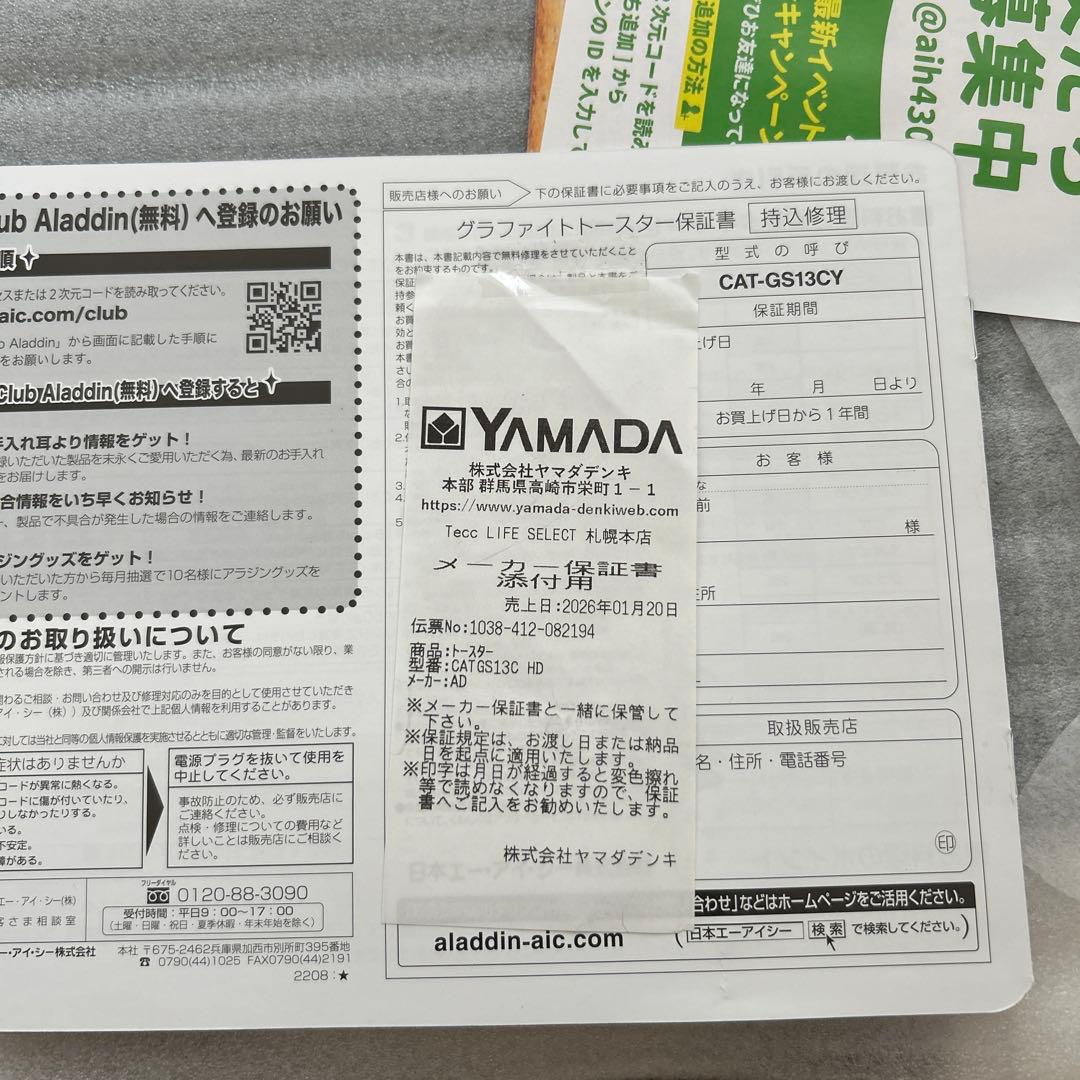 最新イベント
キャンペーン
ぜひお友達になって
追加の方法
次元コードを読み
ち追加]から
ンのIDを入力し
募集中
@aih430
ub Aladdin(無料)へ登録のお願い
順
セスまたは2次元コードを読み取ってください。
aic.com/club
b Aladdin」から画面に記載した手順に
をお願いします。
Club Aladdin(無料)へ登録すると
手入れ耳より情報をゲット!
録いただいた製品を末永くご愛用いただく為、最新のお手入れ
をお届けします。
合情報をいち早くお知らせ!
ー、製品で不具合が発生した場合の情報をご連絡します。
ジングッズをゲット!
いただいた方から毎月抽選で10名様にアラジングッズを
ントします。
のお取り扱いについて
報保護方針に基づき適切に管理いたします。また、お客様の同意がない限り、業
される場合を除き、第三者への開示は行いません。
関わるご相談・お問い合わせ及び修理対応のみを目的として使用させていただき
アイ・シー(株))及び関係会社で上記個人情報を利用することがあります。
に対しては当社と同等の個人情報保護を実施させるとともに適切な管理・監督をいたします。
症状はありませんか
コードが異常に熱くなる。
コードに傷が付いていたり、
りしなかったりする。
いる。
不安定。
障がある。
電源プラグを抜いて使用を
中止してください。
事故防止のため、必ず販売店に
ご連絡ください。
点検・修理についての費用など
詳しいことは販売店にご相談く
ださい。
エー・アイ・シー(株)
客さま相談室
フリーダイヤル
0120-88-3090
受付時間:平日9:00~17:00
(土曜・日曜・祝日・夏季休暇・年末年始を除く)
ー・アイ・シー株式会社
本社 〒675-2462兵庫県加西市別所町395番地
☎ 0790(44)1025 FAX0790(44)2191
2208:★
販売店様へのお願い
下の保証書に必要事項をご記入のうえ、お客様にお渡しください。
グラファイトトースター保証書
持込修理
本書は、本書記載内容で無料修理をさせていただくこと
をお約束するものです。
型式の呼び
CAT-GS13CY
保証期間
上げ日
年 月 日より
お買上げ日から1年間
お客様
な
前
様
住所
取扱販売店
名・住所・電話番号
印
YAMADA
株式会社ヤマダデンキ
本部 群馬県高崎市栄町1-1
https://www.yamada-denkiweb.com
Tecc LIFE SELECT 札幌本店
メーカー保証書
添付用
売上日:2026年01月20日
伝票No:1038-412-082194
商品:トースター
型番:CATGS13C HD
メーカー:AD
※メーカー保証書と一緒に保管して
下さい。
※保証規定は、お渡し日または納品
日を起点に適用いたします。
※印字は月日が経過すると変色擦れ
等で読めなくなりますので、保証
書へご記入をお勧めいたします。
株式会社ヤマダデンキ
合わせ」などはホームページをご活用ください。
aladdin-aic.com
(日本エーアイシー 検索 で検索してください。)